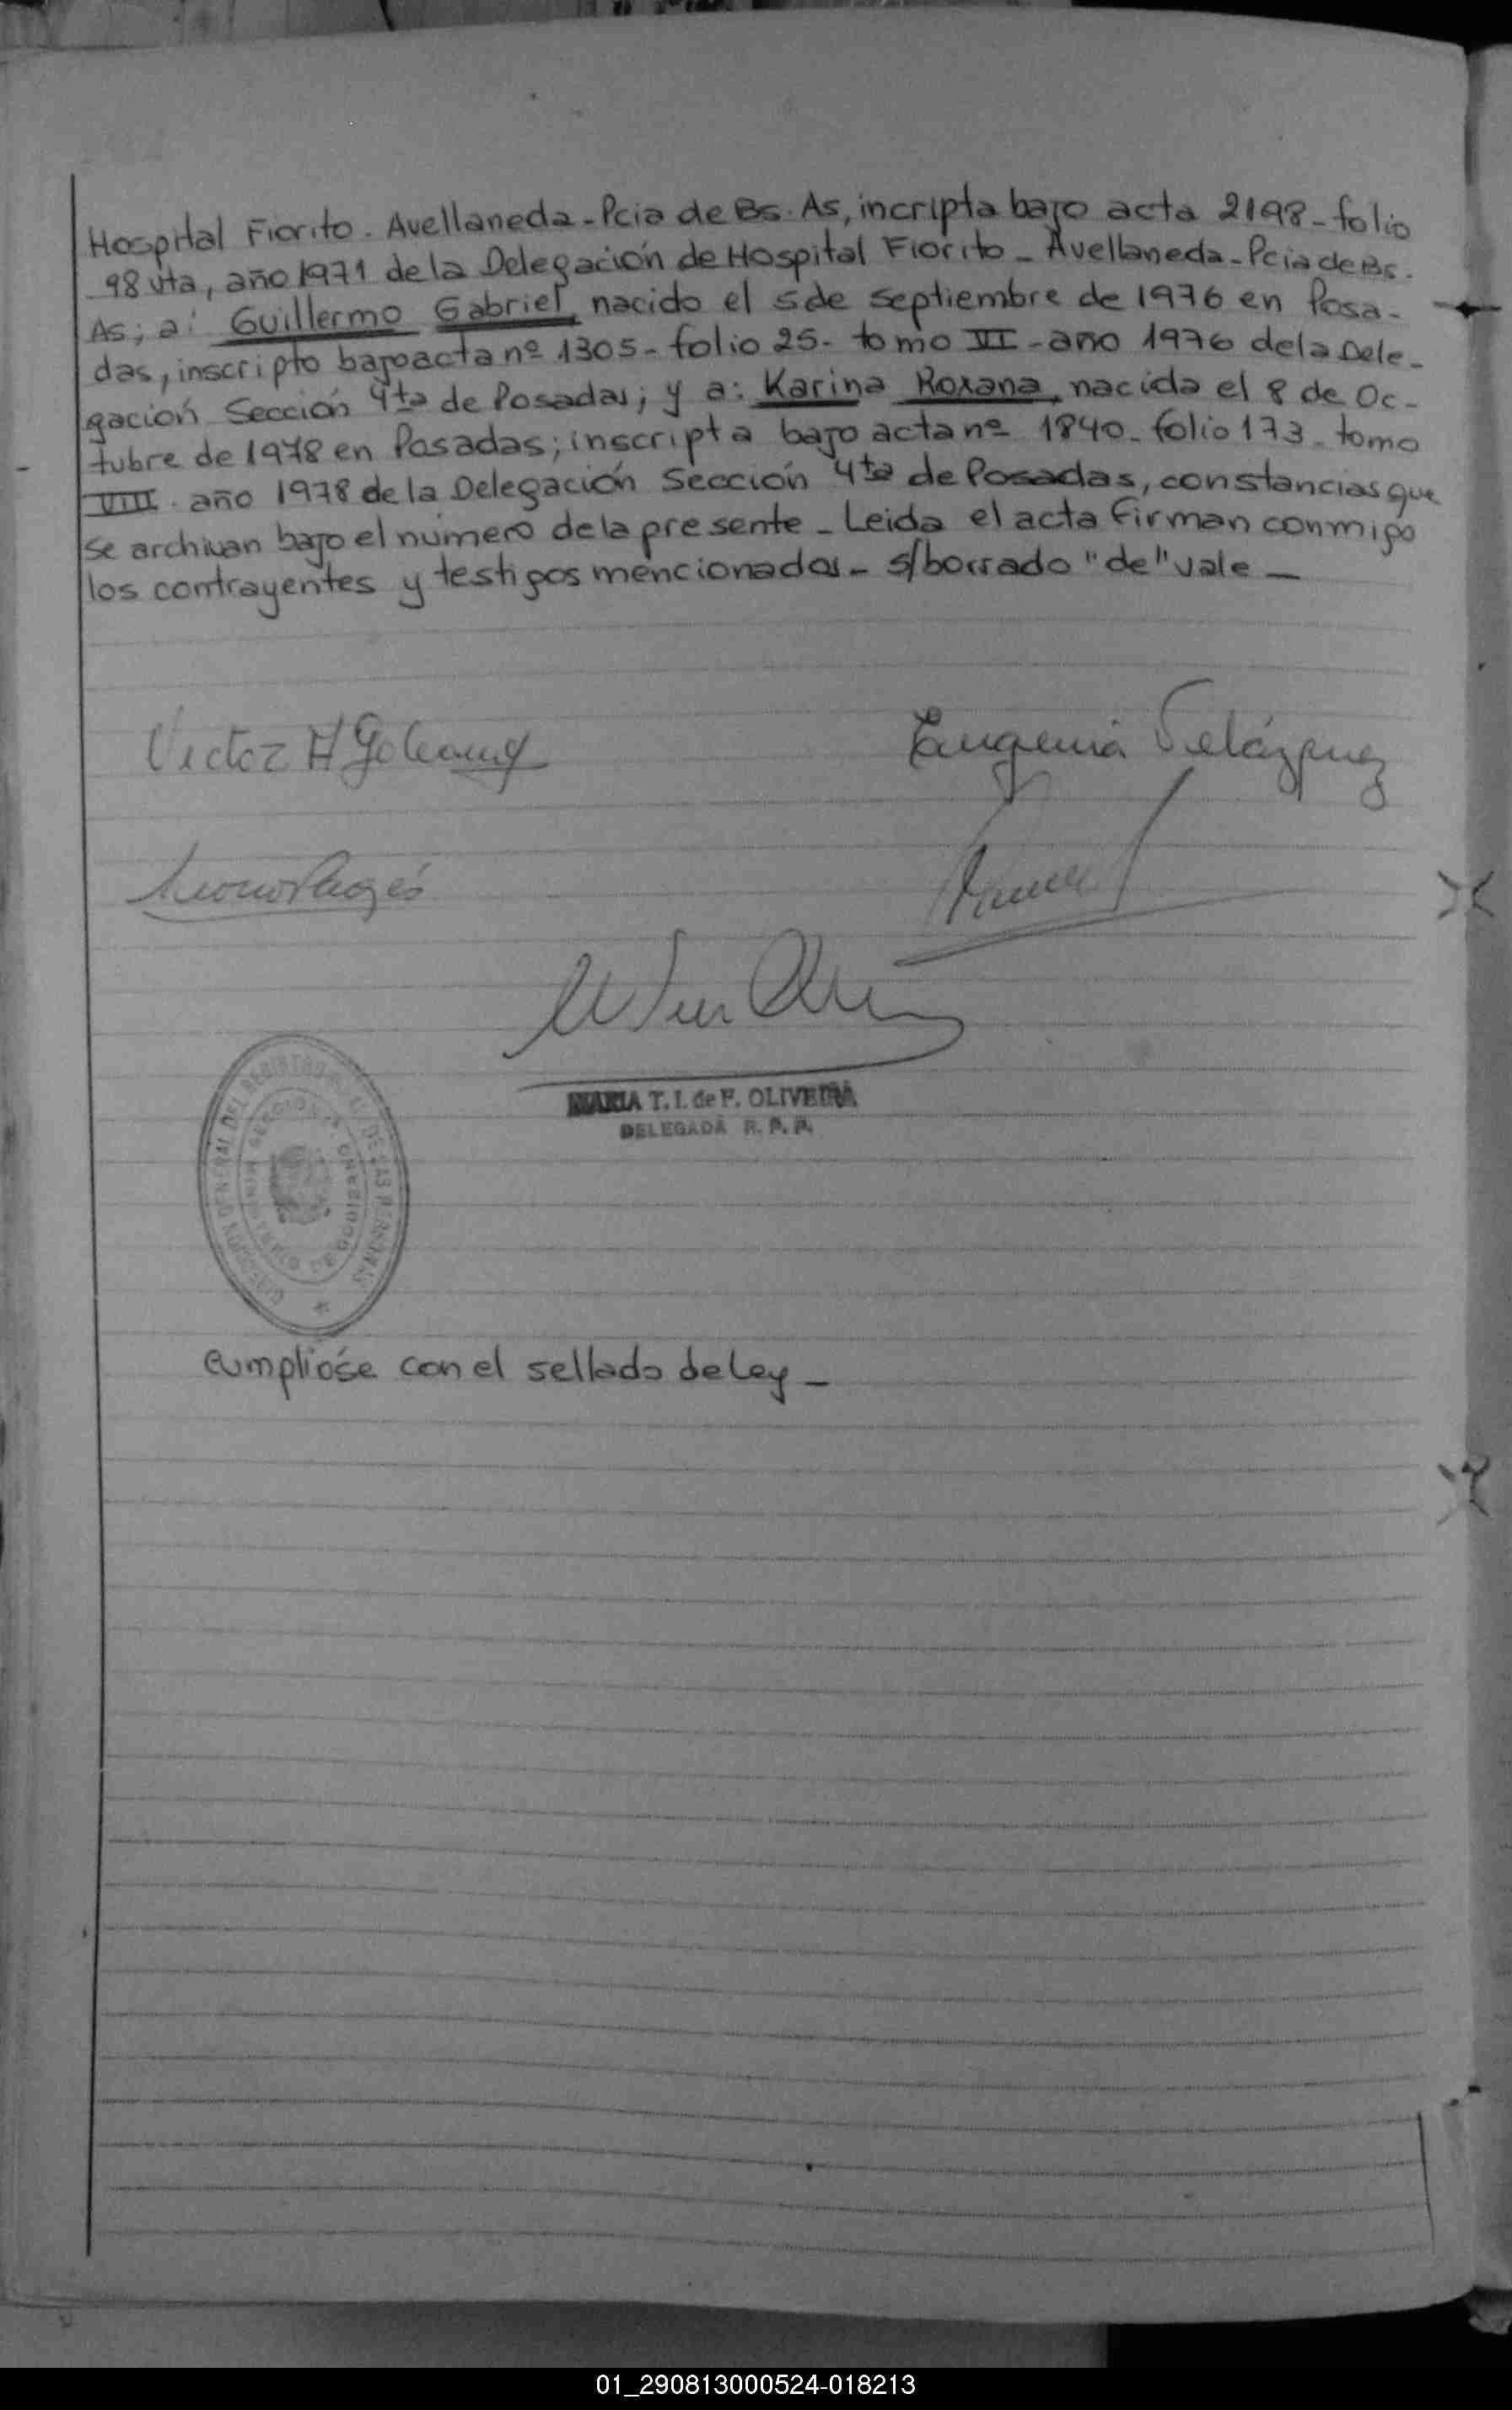 Hospital Fiorito. Avellaneda - Pcia de Bs. As, incripta bajo acta 2198 - folio
98 vta, año 1971 de la Delegación de Hospital Fiorito - Avellaneda - Pcia de Bs.
As; a: Guillermo Gabriel, nacido el 5 de septiembre de 1976 en Posa-
das, inscripto bajo acta nº 1305 - folio 25 - tomo VI - año 1976 de la Dele-
gación Sección 4ta de Posadas; y a: Karina Roxana, nacida el 8 de Oc-
tubre de 1978 en Posadas; inscripta bajo acta nº 1840 - folio 173 - tomo
VIII - año 1978 de la Delegación Sección 4ta de Posadas, constancias que
se archivan bajo el número de la presente - Leida el acta firman conmigo
los contrayentes y testigos mencionados - s/borrado "de" vale -
Victor H
Eugenia Velázquez
MARIA T. I. de F. OLIVEIRA
DELEGADA R. P. P.
Cumplióse con el sellado de Ley -
01_290813000524-018213